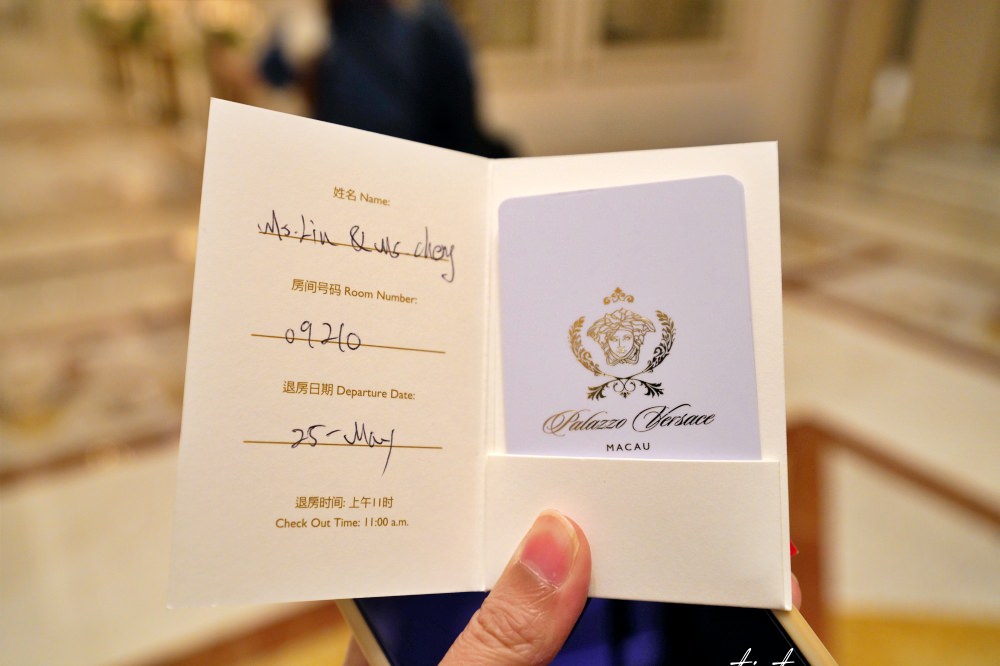 姓名 Name:
Ms. Lin & Ms Cheng
房间号码 Room Number:
09210
退房日期 Departure Date:
25-May
退房时间: 上午11时
Check Out Time: 11:00 a.m.
Palazzo Versace
MACAU